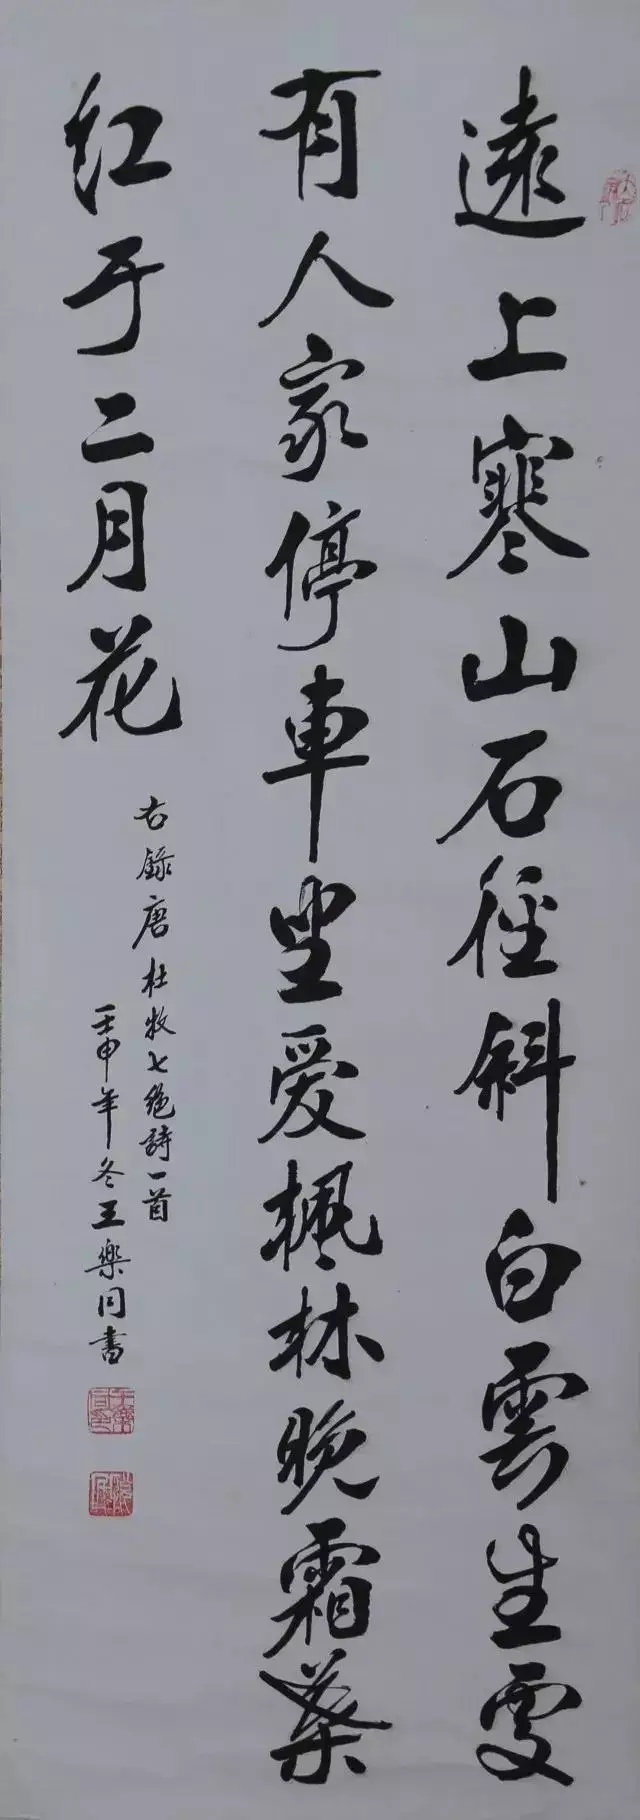 遠上寒山石径斜白雲生處
有人家停車坐爱楓林晚霜葉
红于二月花
右錄唐杜牧七絶詩一首
壬申年冬王樂同書